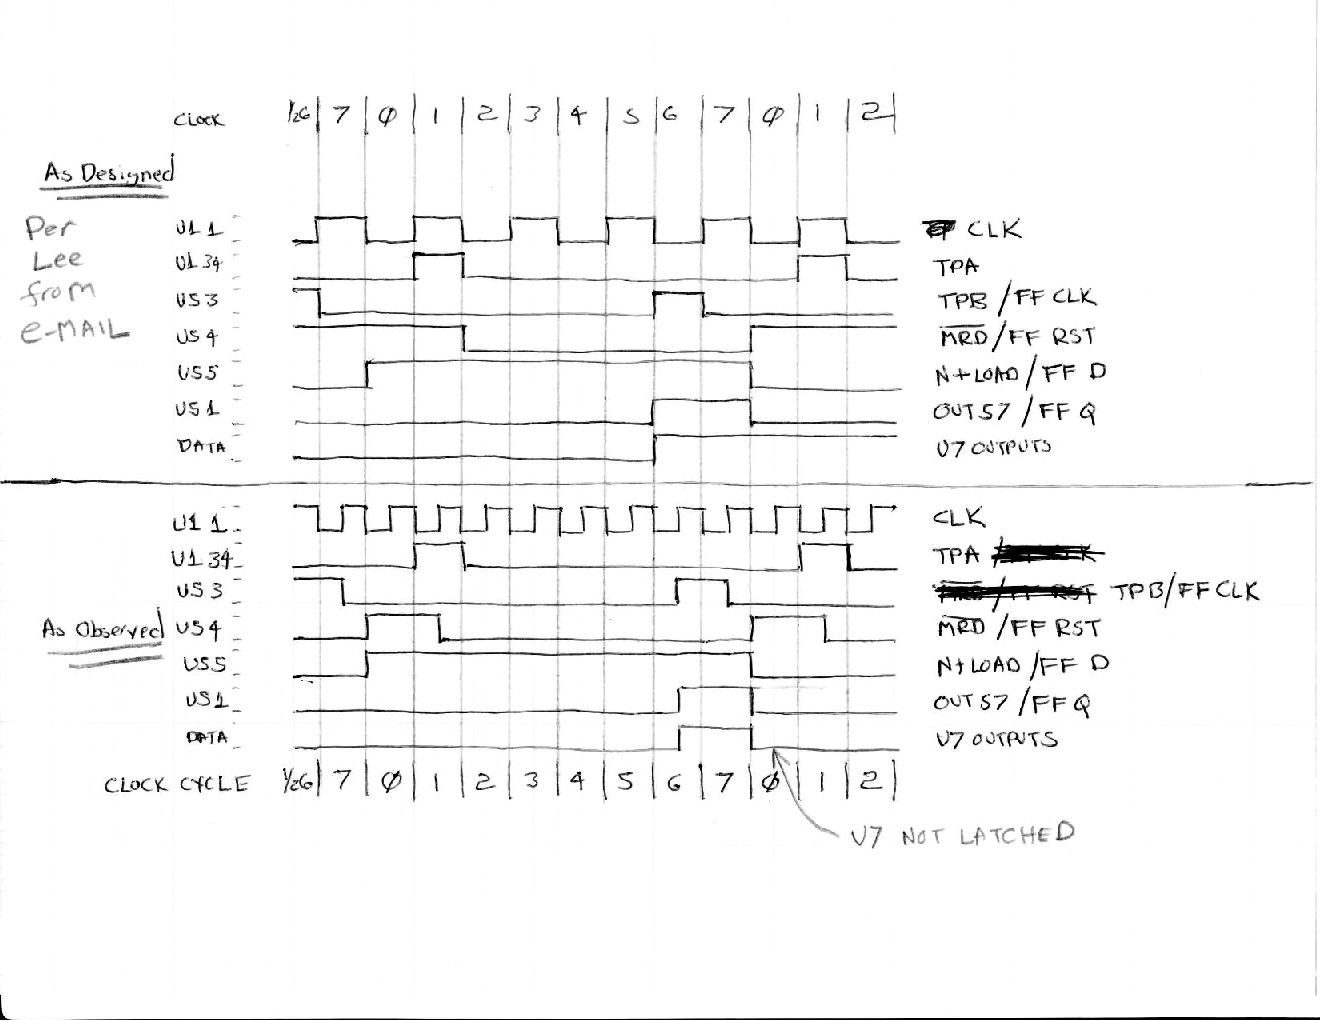 CLOCK 1/2 6 7 0 1 2 3 4 5 6 7 0 1 2
As Designed
Per
Lee
from
e-MAIL
U1 1 CLK
U1 34 TPA
U5 3 TPB/FF CLK
U5 4 MRD/FF RST
U5 5 N+LOAD/FF D
U5 1 OUT 57/FF Q
DATA U7 OUTPUTS
U1 1 CLK
U1 34 TPA
U5 3 TPB/FF CLK
As Observed U5 4 MRD/FF RST
U5 5 N+LOAD/FF D
U5 1 OUT 57/FF Q
DATA U7 OUTPUTS
CLOCK CYCLE 1/2 6 7 0 1 2 3 4 5 6 7 0 1 2
U7 NOT LATCHED